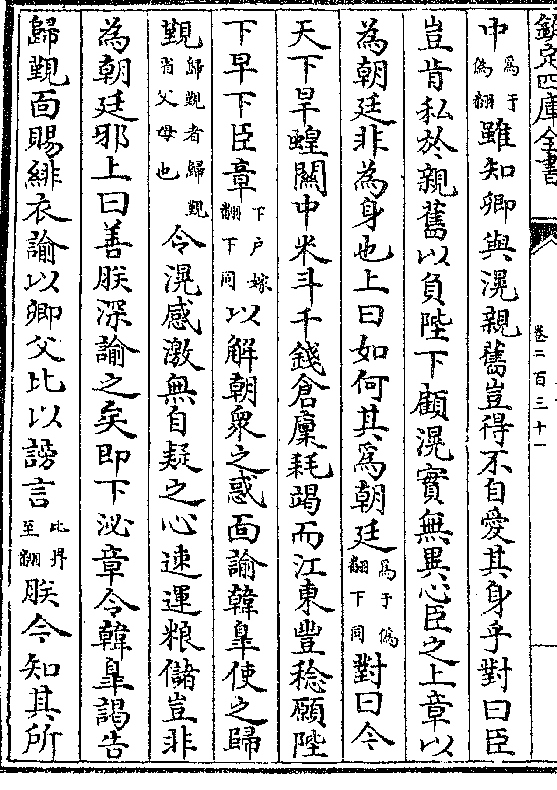 欽定四庫全書
卷二百三十一
中為于偽翻雖知卿與滉親舊豈得不自愛其身乎對曰臣
豈肯私於親舊以負陛下顧滉實無異心臣之上章以
為朝廷非為身也上曰如何其為朝廷為于偽翻下同對曰今
天下旱蝗關中米斗千錢倉廩耗竭而江東豐稔願陛
下早下臣章下戶嫁翻下同以解朝衆之惑面諭韓臯使之歸
覲歸覲者歸覲省父母也令滉感激無自疑之心速運粮儲豈非
為朝廷邪上曰善朕深諭之矣即下泌章令韓臯謁告
歸覲面賜緋衣諭以卿父比以謗言比至翻朕今知其所